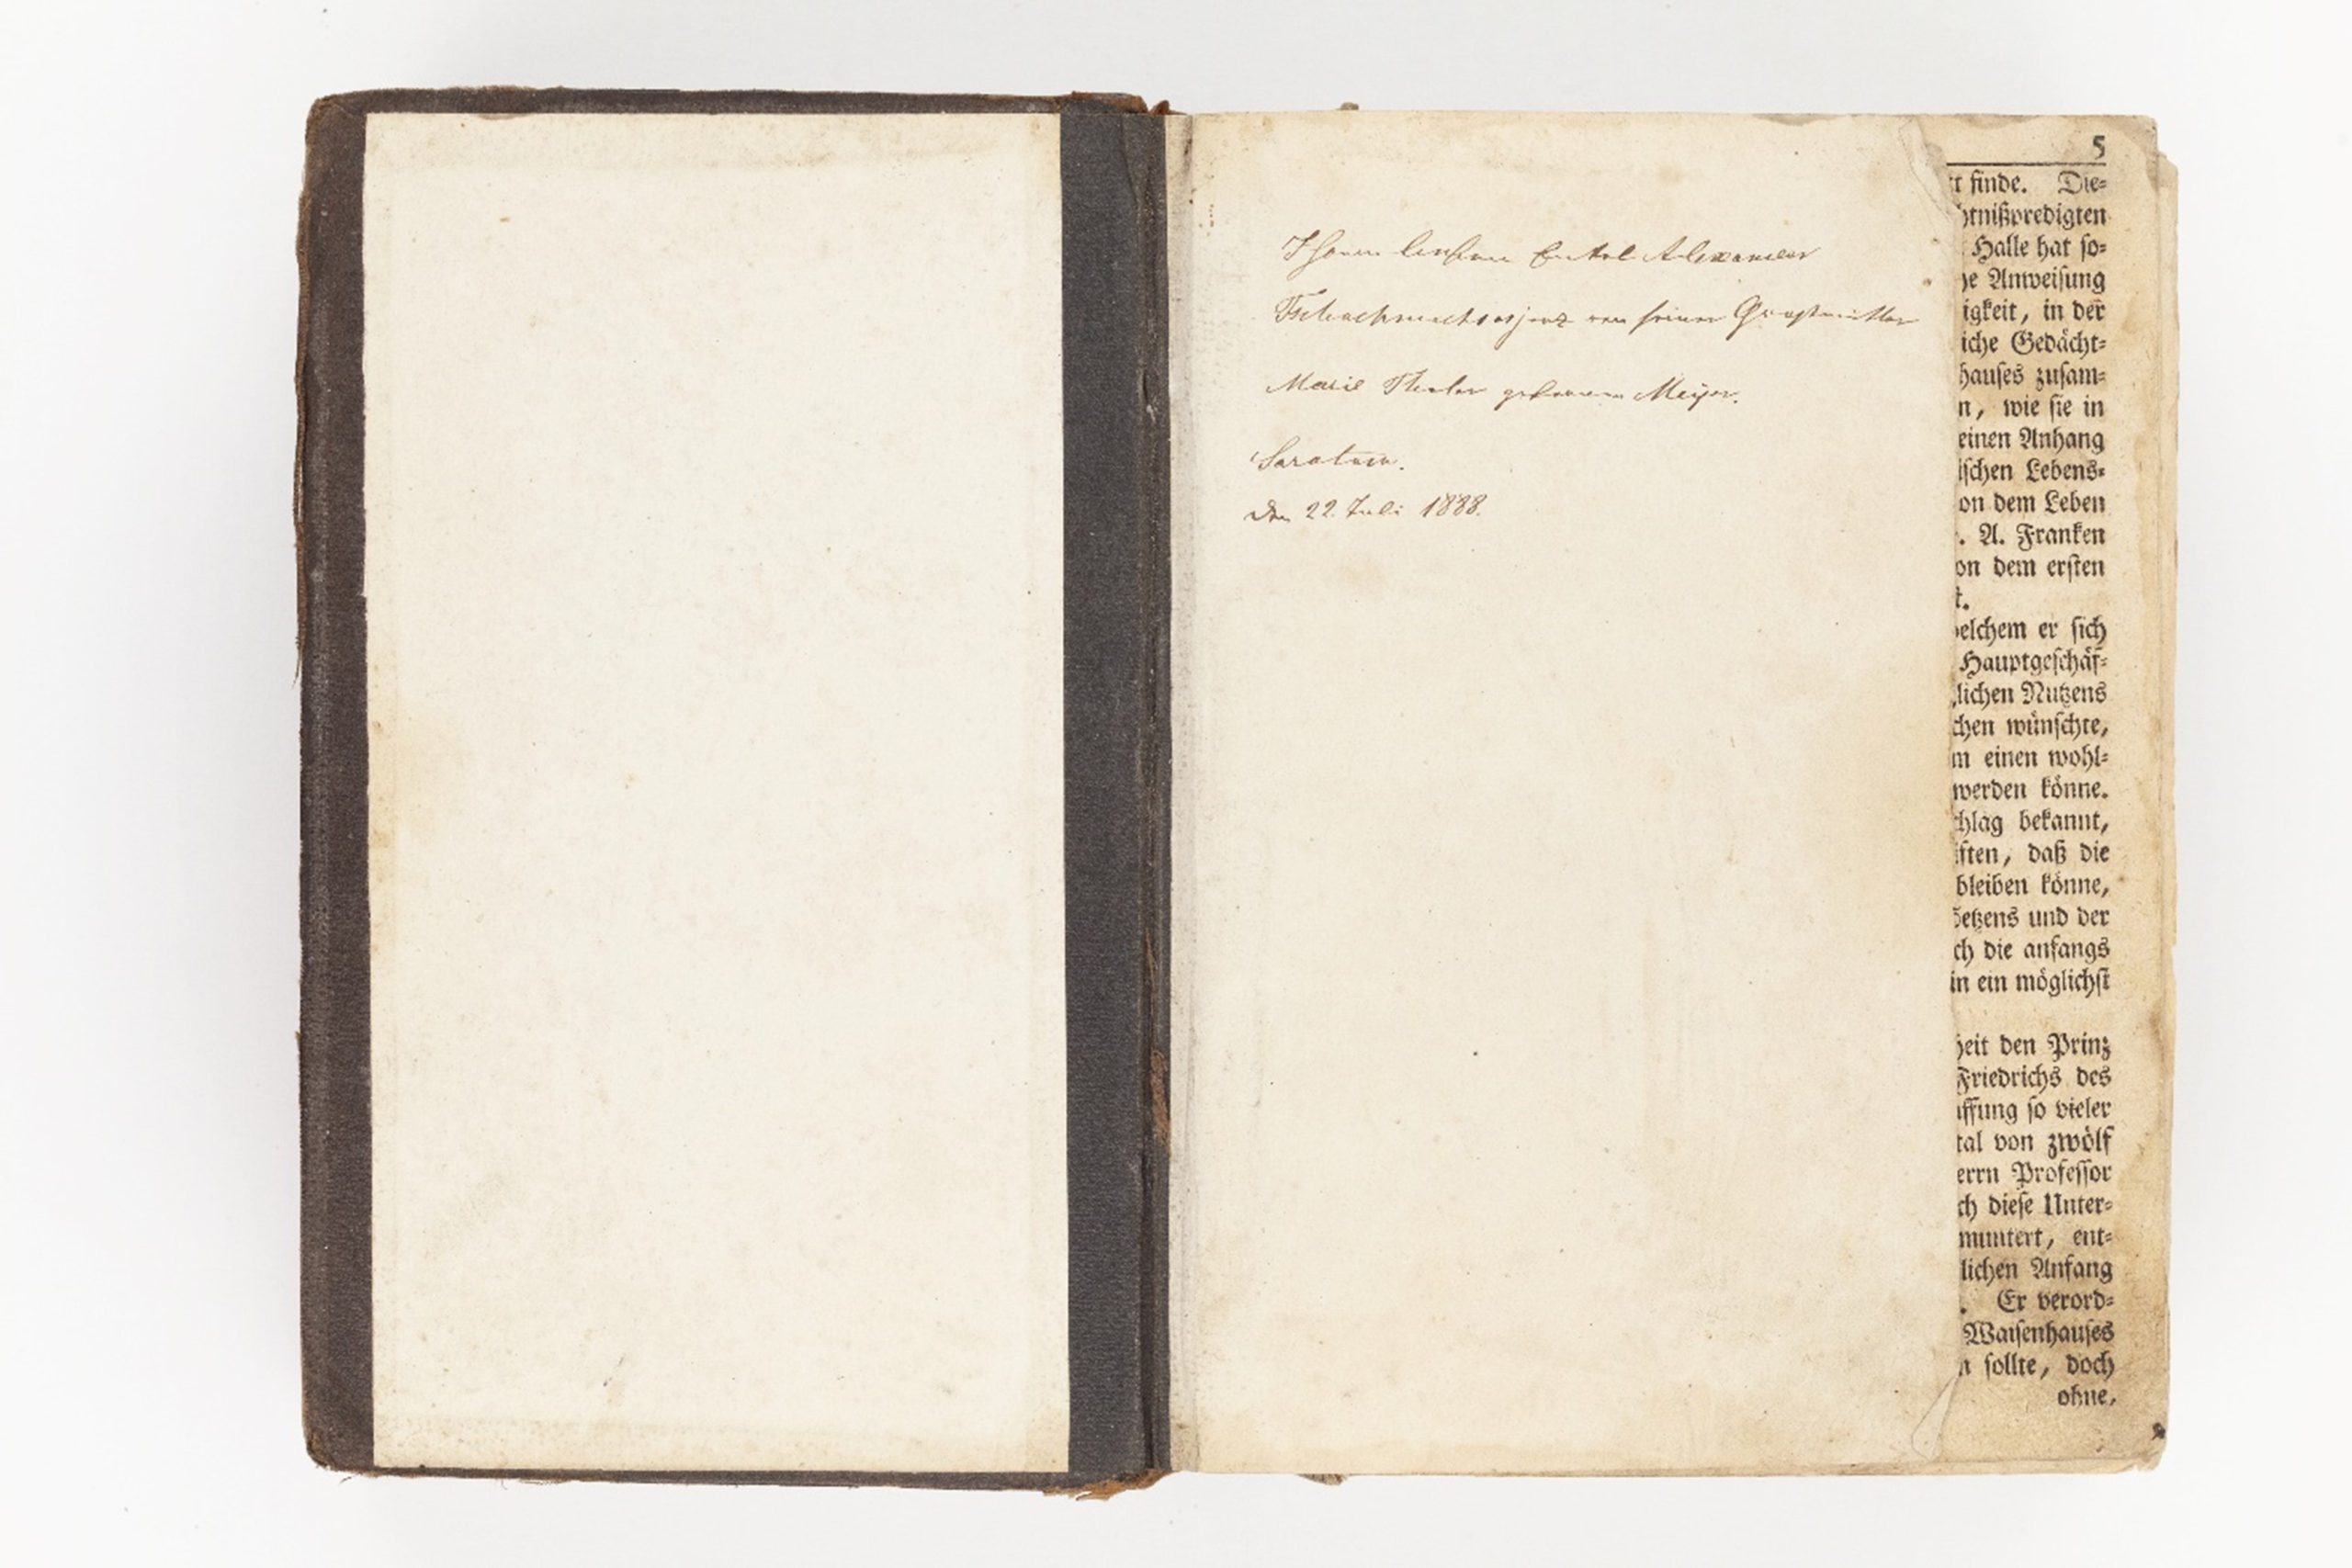 Ihrem lieben Enkel Alexander
von seiner Großmutter
Marie geborene Meyer.
Saratow.
Den 22. Juli 1888.
5
finde. Die-
htnißpredigten
Halle hat so-
Anweisung
igkeit, in der
iche Gedächt-
hauses zusam-
n, wie sie in
einen Anhang
ischen Lebens-
on dem Leben
. A. Franken
on dem ersten
t.
elchem er sich
Hauptgeschäf-
lichen Nutzens
chen wünschte,
m einen wohl-
werden könne.
hlag bekannt,
ften, daß die
bleiben könne,
etzens und der
ch die anfangs
in ein möglichst
heit den Prinz
Friedrichs des
ffung so vieler
tal von zwölf
errn Professor
ch diese Unter-
muntert, ent-
lichen Anfang
. Er verord-
Waisenhauses
n sollte, doch
ohne,